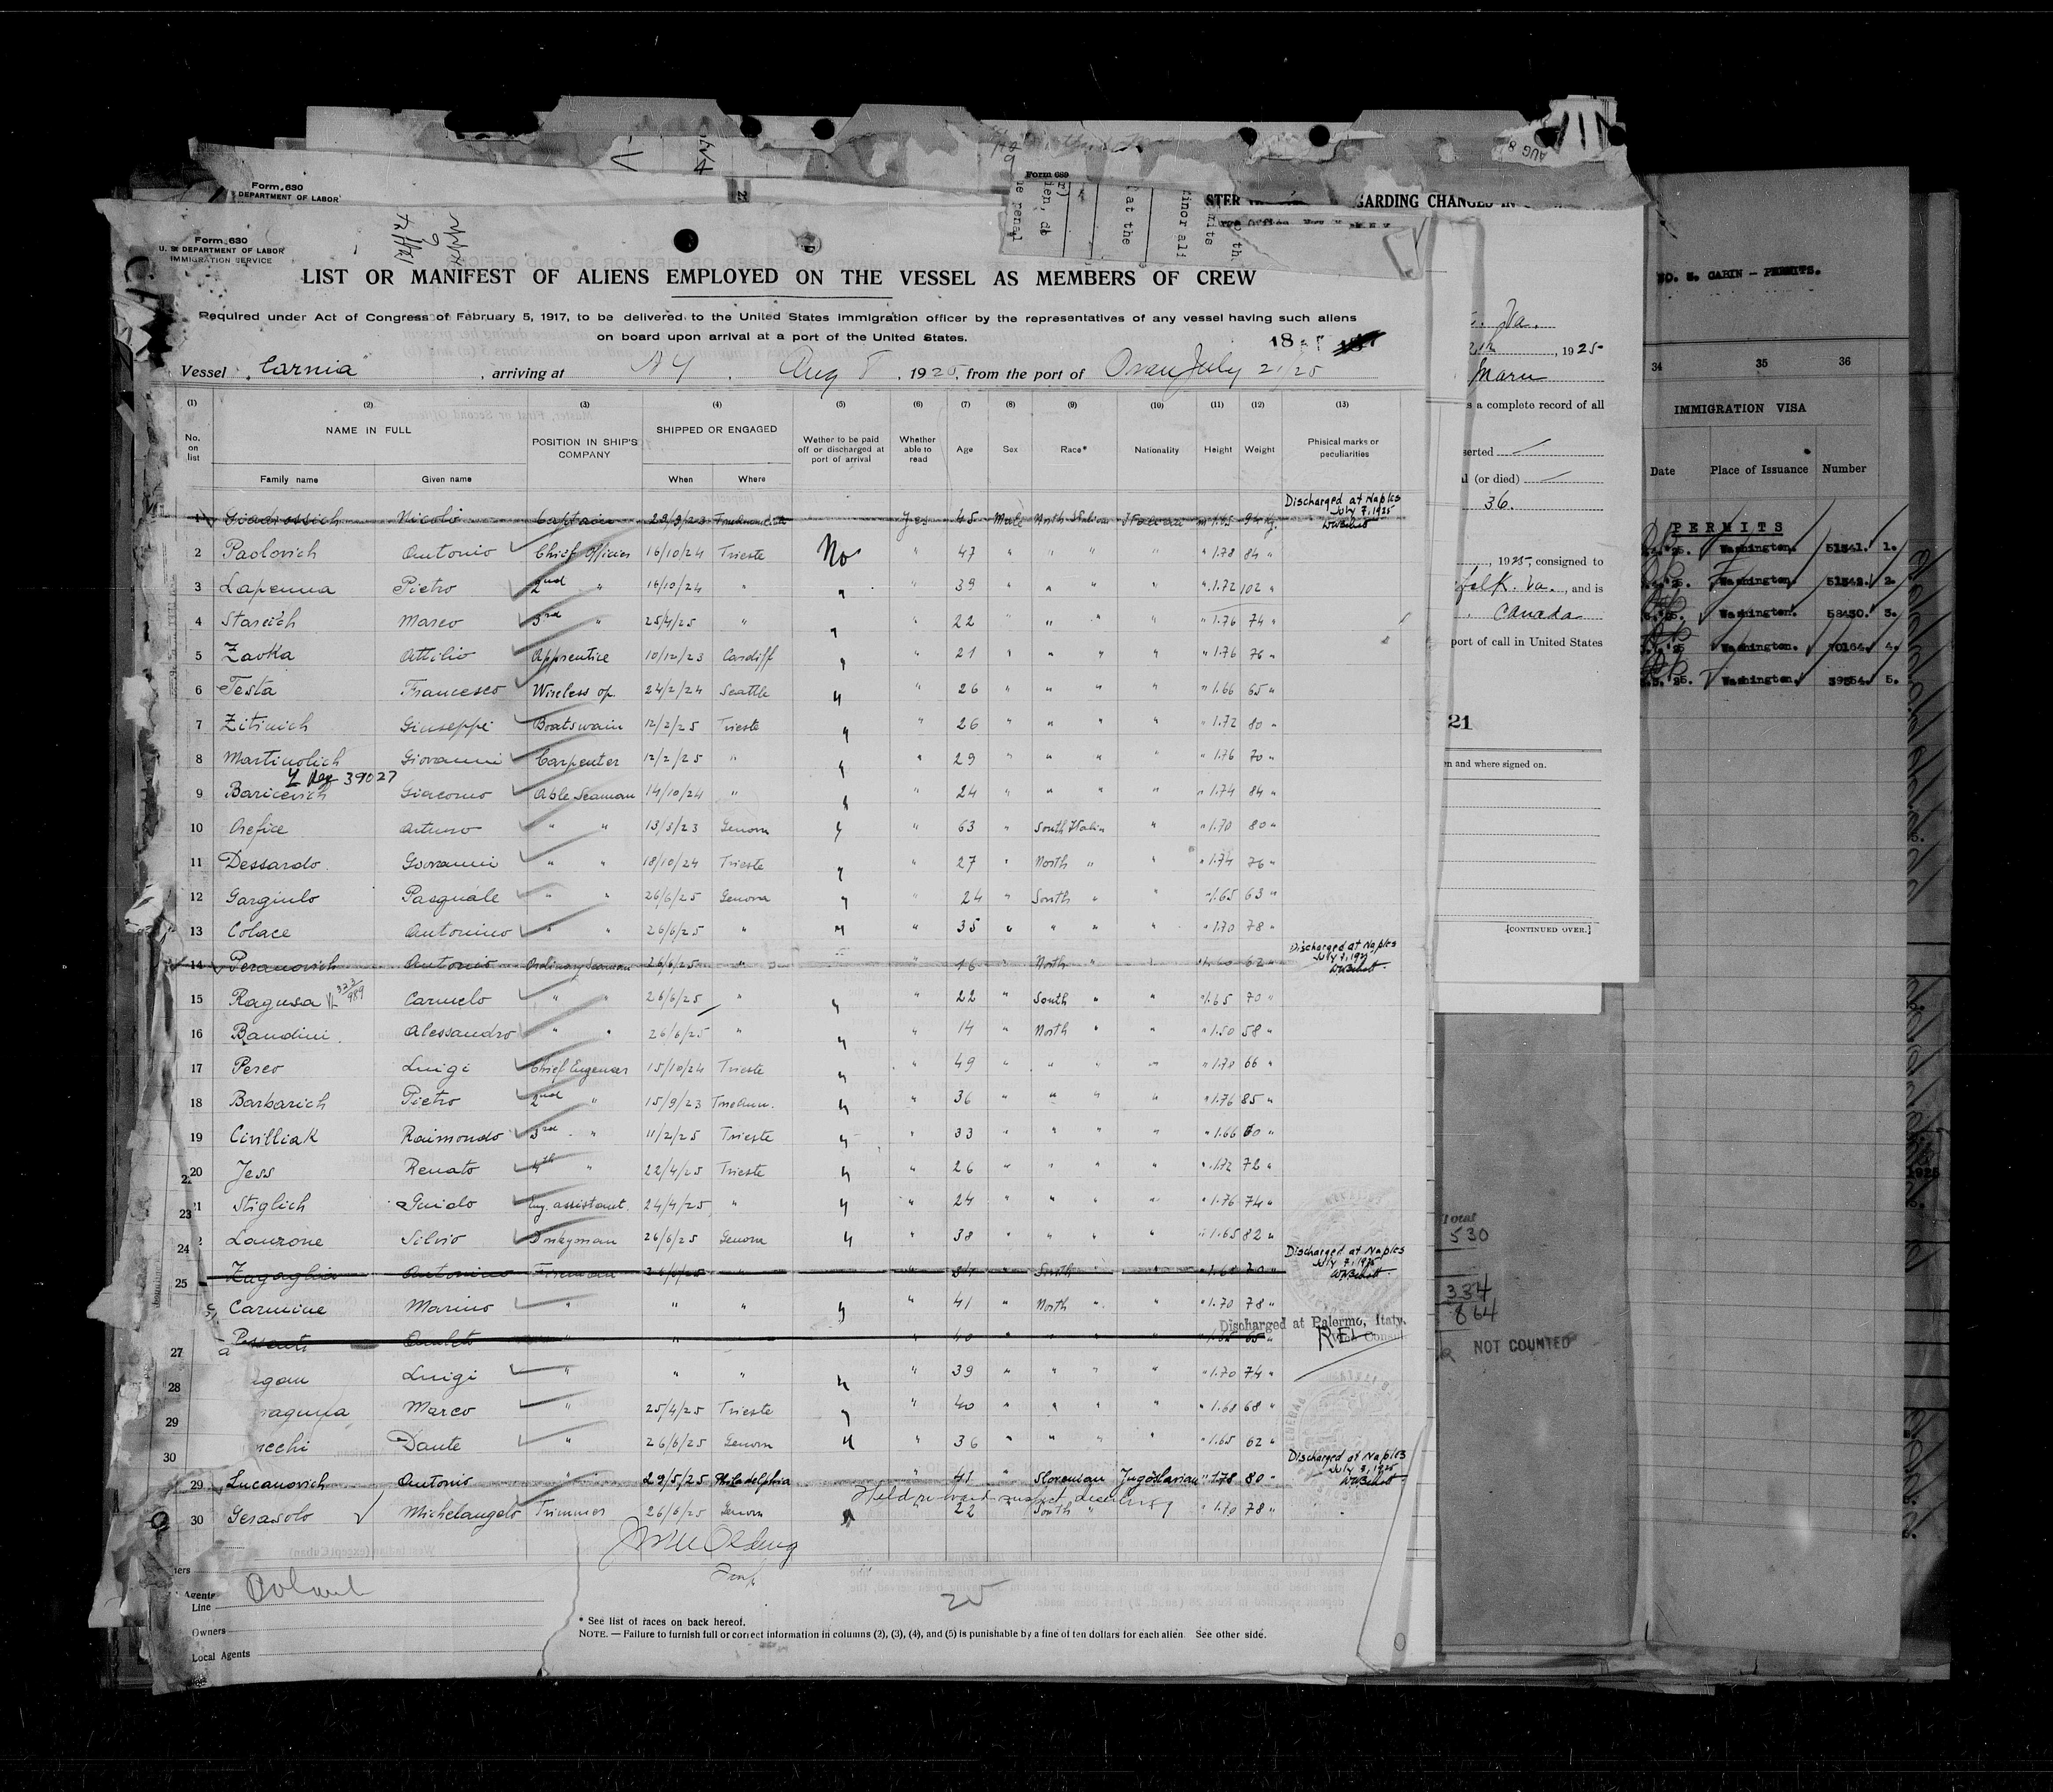 Form 630
DEPARTMENT OF LABOR
Form 689
AUG 8
Form 630
U. S. DEPARTMENT OF LABOR
IMMIGRATION SERVICE
LIST OR MANIFEST OF ALIENS EMPLOYED ON THE VESSEL AS MEMBERS OF CREW
Required under Act of Congress of February 5, 1917, to be delivered to the United States immigration officer by the representatives of any vessel having such aliens
on board upon arrival at a port of the United States.
Vessel Carnia, arriving at N Y. Aug 8, 1925, from the port of Oran July 21/25
(1) (2) (3) (4) (5) (6) (7) (8) (9) (10) (11) (12) (13)
No. on list NAME IN FULL POSITION IN SHIP'S COMPANY SHIPPED OR ENGAGED Wether to be paid off or discharged at port of arrival Whether able to read Age Sex Race* Nationality Height Weight Phisical marks or peculiarities
Family name Given name When Where
Discharged at Naples July 7, 1925
1 Giadrossich Nicolò Captain 29/9/23 Yes 45 Male North Italian Italian m 1.75 94 kg.
2 Paolovich Antonio Chief Officer 16/10/24 Trieste No " 47 " " " " " 1.78 84 "
3 Lapenna Pietro 2nd " 16/10/24 " " " 39 " " " " " 1.72 102 "
4 Starcich Marco 3rd " 25/4/25 " " " 22 " " " " " 1.76 74 "
5 Zavka Attilio Apprentice 10/12/23 Cardiff " " 21 " " " " " 1.76 76 "
6 Testa Francesco Wireless op. 24/2/24 Seattle " " 26 " " " " " 1.66 65 "
7 Zitinich Giuseppe Boatswain 12/2/25 Trieste " " 26 " " " " " 1.72 80 "
8 Martinolich Giovanni Carpenter 12/2/25 " " " 29 " " " " " 1.76 70 "
39027
9 Baricevich Giacomo Able Seaman 14/10/24 " " " 24 " " " " " 1.74 84 "
10 Orefice Arturo " " 13/3/23 Genova " " 63 " South Italian " " 1.70 80 "
11 Dessardo Giovanni " " 18/10/24 Trieste " " 27 " North " " " 1.74 76 "
12 Gargiulo Pasquale " " 26/6/25 Genova " " 24 " South " " " 1.65 63 "
13 Colace Antonino " " 26/6/25 " " " 35 " " " " " 1.70 78 "
Discharged at Naples July 7, 1925
14 Peranovich Antonio Ordinary Seaman 26/6/25 " " 16 " North " " " 1.60 62 "
15 Ragusa Carmelo " " 26/6/25 " " " 22 " South " " " 1.65 70 "
16 Bandini Alessandro " " 26/6/25 " " " 14 " North " " " 1.50 58 "
17 Perco Luigi Chief Engineer 15/10/24 Trieste " " 49 " " " " " 1.70 66 "
18 Barbarich Pietro 2nd " 15/9/23 " " 36 " " " " " 1.76 85 "
19 Civilliak Raimondo 3rd " 11/2/25 Trieste " " 33 " " " " " 1.66 60 "
20 Jess Renato 4th " 22/4/25 Trieste " " 26 " " " " " 1.72 72 "
22
23 Stiglich Guido Eng. assistant. 24/4/25 " " " 24 " " " " " 1.76 74 "
24 Lanrone Silvio Donkeyman 26/6/25 Genova " " 38 " " " " " 1.65 82 "
Discharged at Naples July 7, 1925
25 Zagaglia Antonino Fireman 26/6/25 " " 34 " South " " " 1.60 70 "
Carmine Marino " " " " " 41 " North " " " 1.70 78 "
Discharged at Palermo, Italy.
27 " " " 40 " " " " " 65 "
28 Luigi " " " " " 39 " " " " " 1.70 74 "
29 Marco " 25/4/25 Trieste " " 40 " " " " " 1.68 68 "
30 Dante " 26/6/25 Genova " " 36 " " " " " 1.65 62 "
Discharged at Naples July 7, 1925
29 Lucanovich Antonio " 29/5/25 Philadelphia " 41 " Slovenian Jugoslavian " 1.78 80 "
30 Gerasolo Michelangelo Trimmer 26/6/25 Genova 22 " South " " 1.70 78 "
Agents
Line
Owners
Local Agents
25
* See list of races on back hereof.
NOTE. — Failure to furnish full or correct information in columns (2), (3), (4), and (5) is punishable by a fine of ten dollars for each alien. See other side.
STER
GARDING CHANGES IN
Va.
, 1925
Maru
s a complete record of all
serted
(or died)
36.
, 1925, consigned to
folk. Va., and is
Canada
port of call in United States
21
en and where signed on.
[CONTINUED OVER.]
Total
530
334
864
NOT COUNTED
NO. 5. CABIN - PERMITS.
34 35 36
IMMIGRATION VISA
Date Place of Issuance Number
PERMITS
25. Washington. 51341. 1.
Washington. 51342. 2.
25. Washington. 58430. 3.
25 Washington. 70164. 4.
25. Washington. 39354. 5.